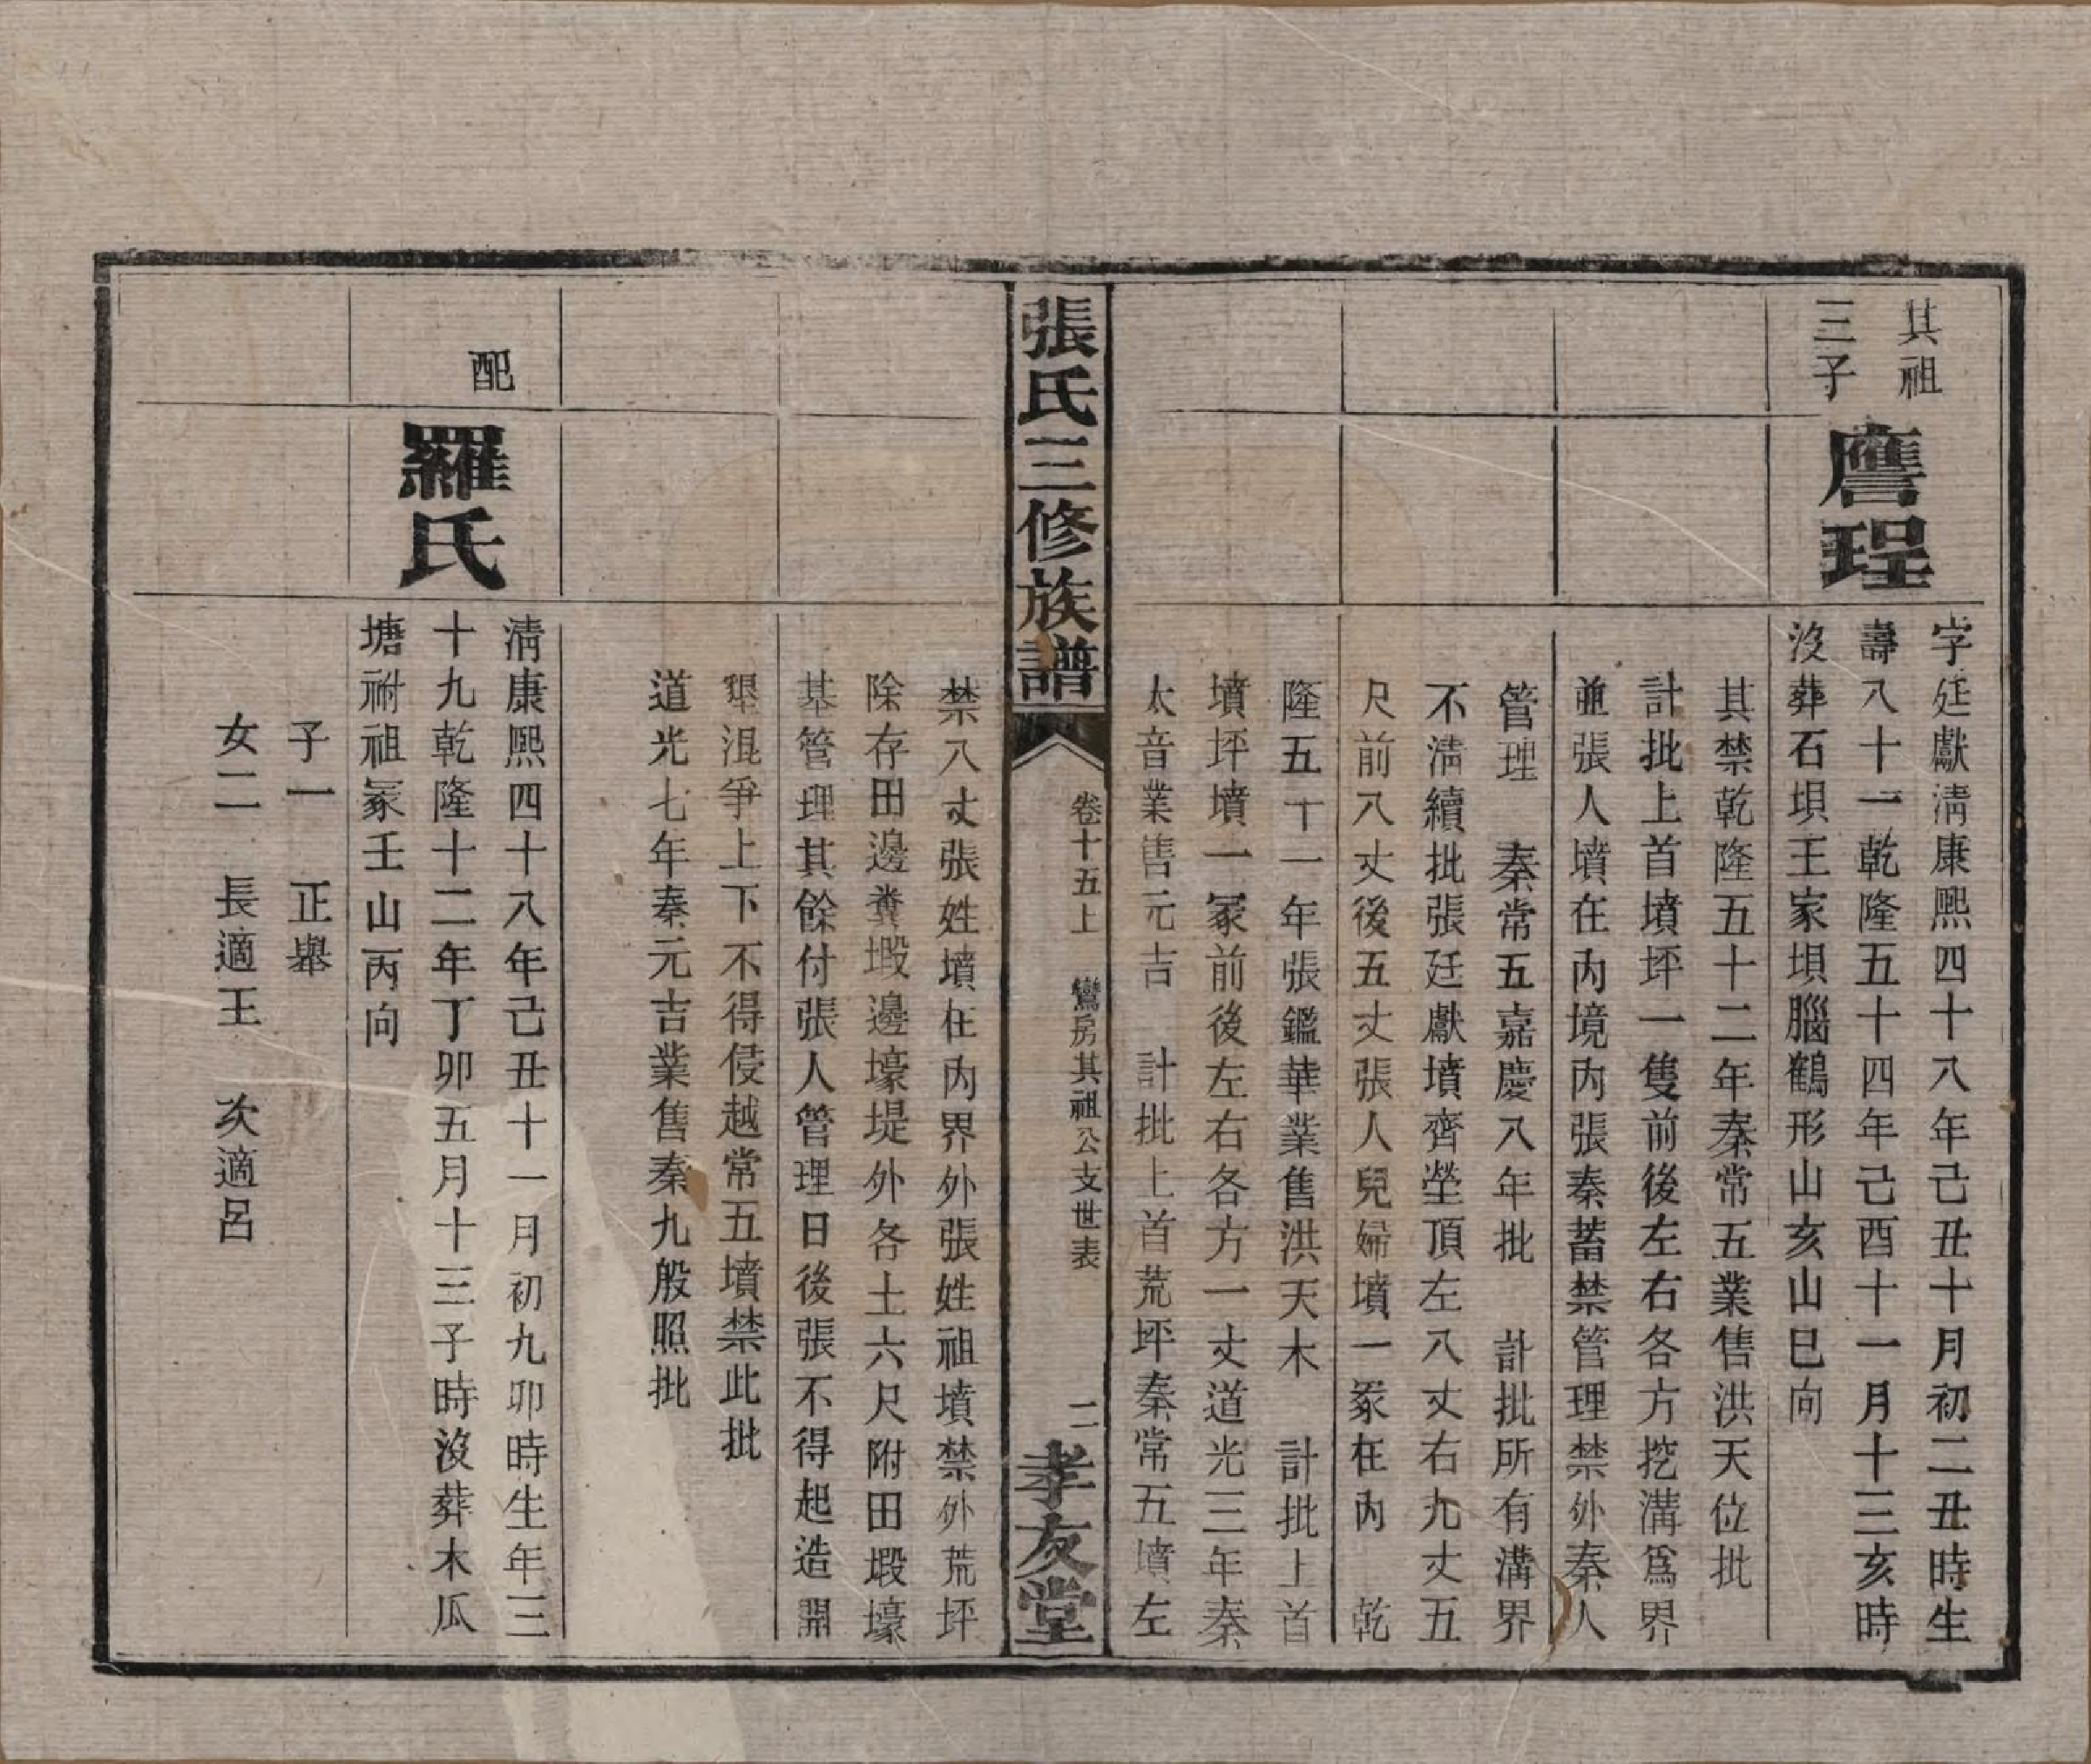 其祖
三子
譍珵
字廷獻淸康熙四十八年己丑十月初二丑時生
壽八十一乾隆五十四年己酉十一月十三亥時
沒葬石垻王家垻腦鶴形山亥山巳向
其禁乾隆五十二年秦常五業售洪天位批
計批上首墳坪一隻前後左右各方挖溝爲界
並張人墳在內境內張秦蓄禁管理禁外秦人
管理 秦常五嘉慶八年批 計批所有溝界
不淸續批張廷獻墳齊塋頂左八丈右九丈五
尺前八丈後五丈張人兒婦墳一冢在內 乾
隆五十一年張鑑華業售洪天木 計批上首
墳坪墳一冢前後左右各方一丈道光三年秦
太音業售元吉 計批上首荒坪秦常五墳左
張氏三修族譜
卷十五上 鸞房其祖公支世表
二
孝友堂
禁八丈張姓墳在內界外張姓祖墳禁外荒坪
除存田邊糞塅邊壕堤外各土六尺附田塅壕
基管理其餘付張人管理日後張不得起造開
墾混爭上下不得侵越常五墳禁此批
道光七年秦元吉業售秦九般照批
配
羅氏
淸康熙四十八年己丑十一月初九卯時生年三
十九乾隆十二年丁卯五月十三子時沒葬木瓜
塘祔祖冢壬山丙向
子一 正舉
女二 長適王 次適呂